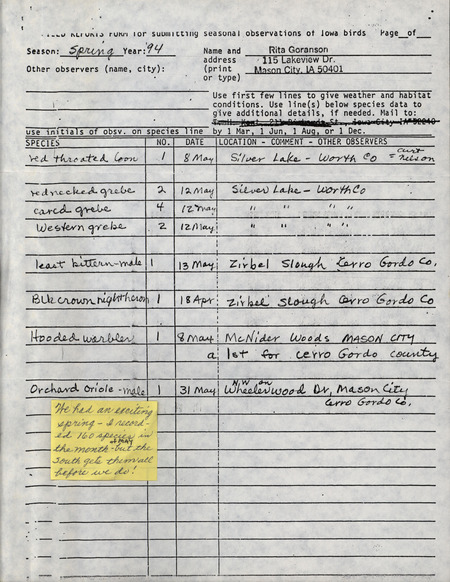 FIELD REPORTS FORM for submitting seasonal observations of Iowa birds Page of
Season: Spring Year: 94
Name and address (print or type)
Rita Goranson
115 Lakeview Dr.
Mason City, IA 50401
Other observers (name, city):
Use first few lines to give weather and habitat
conditions. Use line(s) below species data to
give additional details, if needed. Mail to:
use initials of obsv. on species line by 1 Mar, 1 Jun, 1 Aug, or 1 Dec.
SPECIES NO. DATE LOCATION - COMMENT - OTHER OBSERVERS
red throated loon 1 8 May Silver Lake - Worth Co = Curt Nelson
rednecked grebe 2 12 May Silver Lake - Worth Co
eared grebe 4 12 May " " " "
Western grebe 2 12 May " " " "
least bittern-male 1 13 May Zirbel Slough Cerro Gordo Co.
Blk crown night heron 1 18 Apr. Zirbel Slough Cerro Gordo Co
Hooded warbler 1 8 May McNider Woods MASON CITY
a 1st for Cerro Gordo county
Orchard Oriole - male 1 31 May NW on Wheelerwood Dr, Mason City
Cerro Gordo Co.
We had an exciting
spring - I record-
ed 160 species in
the month of May - but the
South gets them all
before we do!